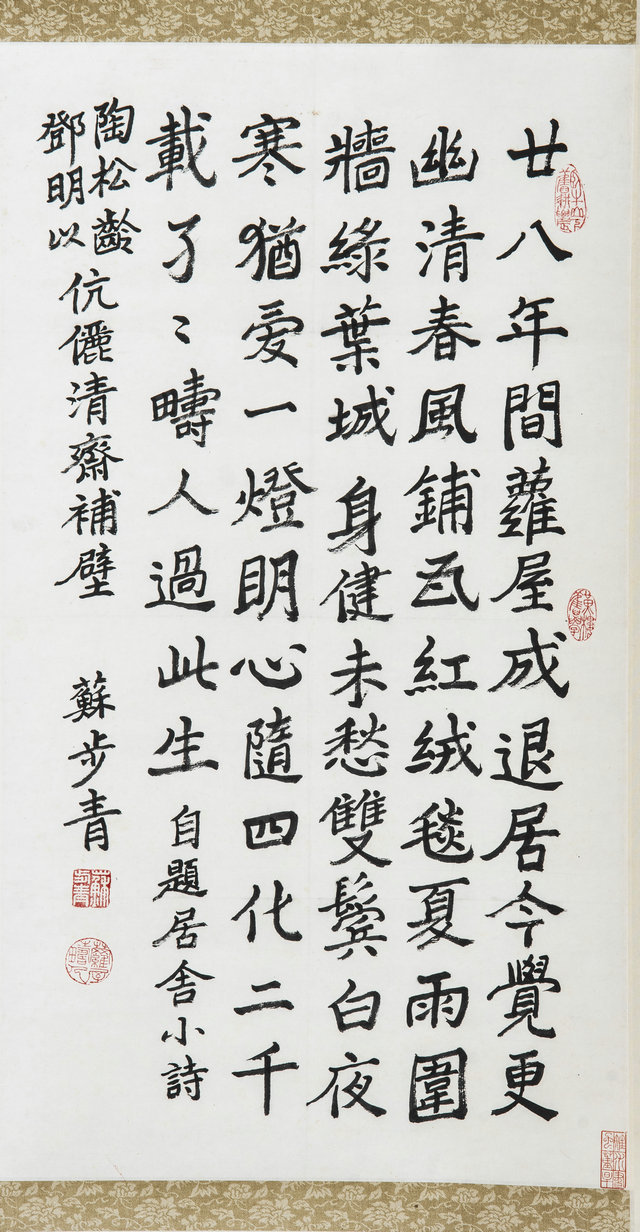 廿八年間蘿屋成退居今覺更
幽清春風鋪瓦紅絨毯夏雨圍
牆綠葉城身健未愁雙鬢白夜
寒猶愛一燈明心隨四化二千
載了〻疇人過此生自題居舍小詩
陶松齡
鄧明以
伉儷清齋補壁
蘇步青